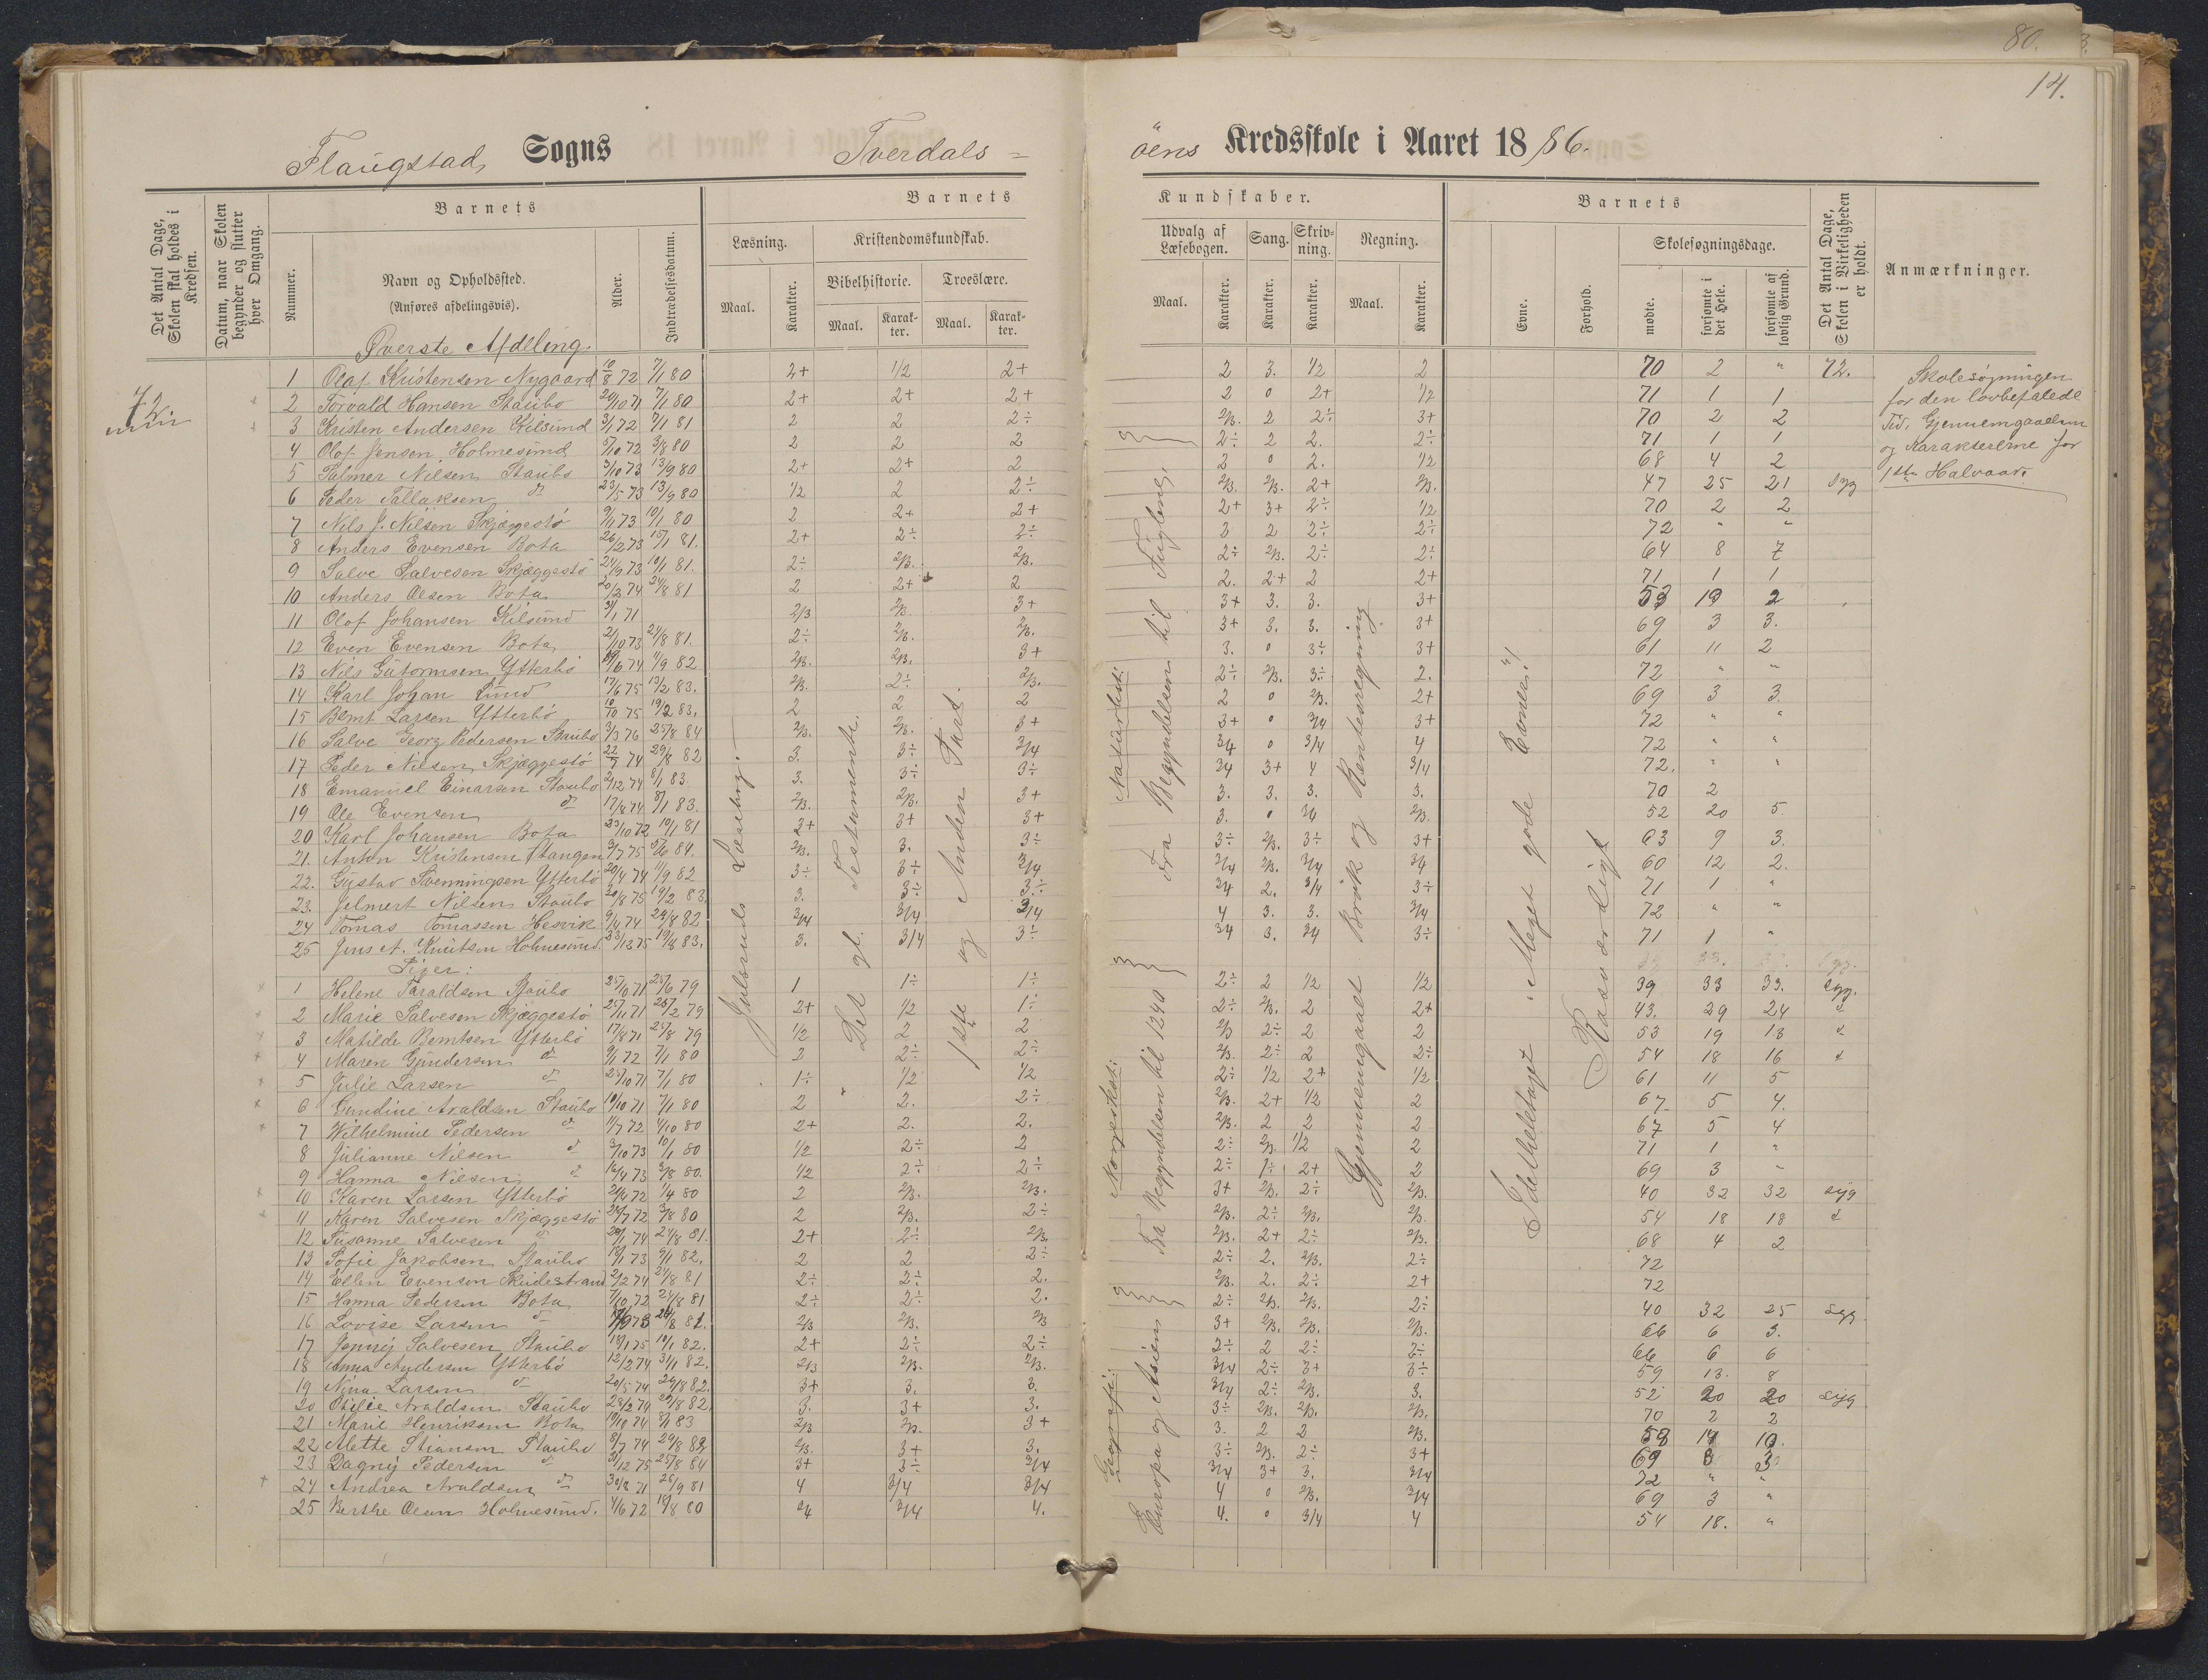 80.
14.
Flaugstad Sogns Tverdals=
öens Kredsskole i Aaret 1886.
Det Antal Dage, Skolen skal holdes i Kredsen.
Datum, naar Skolen begynder og slutter hver Omgang.
Barnets
Nummer.
Navn og Opholdssted.
(Anføres afdelingsvis).
Alder.
Indtrædelsesdatum.
Barnets
Læsning.
Maal.
Karakter.
Kristendomskundskab.
Bibelhistorie.
Maal.
Karak-ter.
Troeslære.
Maal.
Karak-ter.
Kundskaber.
Udvalg af Læsebogen.
Maal.
Karakter.
Sang.
Karakter.
Skriv-ning.
Karakter.
Regning.
Maal.
Karakter.
Barnets
Evne.
Forhold.
Skolesøgningsdage.
mødte.
forsømte i det Hele.
forsømte af lovlig Grund.
Det Antal Dage, Skolen i Virkeligheden er holdt.
Anmærkninger.
Øverste Afdeling.
72
1 Olaf Kristensen Nygaard 10/8 72 7/1 80 2+ 1/2 2+ 2 3. 1/2 2 70 2 " 72.
2 Torvald Hansen Staubo 20/10 71 7/1 80 2+ 2+ 2+ 2 0 2+ 1/2 71 1 1
3 Kristen Andersen Kilsund 3/1 72 7/1 81 2 2 2÷ 2/3. 2 2÷ 3+ 70 2 2
4 Olaf Jensen Holmesund 5/10 72 3/8 80 2 2 2 2÷ 2 2. 2÷ 71 1 1
5 Palmer Nilsen Staubo 3/10 73 13/9 80 2+ 2+ 2 2 0 2. 1/2 68 4 2
6 Peder Tallaksen d 23/5 73 13/9 80 1/2 2 2÷ 2/3. 2/3. 2+ 2/3. 47 25 21 syg
7 Nils J. Nilsen Skjæggestö 9/11 73 10/1 80 2 2+ 2+ 2+ 3+ 2÷ 1/2 70 2 2
8 Anders Evensen Bota 26/2 73 15/1 81. 2+ 2÷ 2÷ 3 2 2÷ 2÷ 72 " "
9 Salve Salvesen Skjæggestö 24/9 73 10/1 81. 2÷ 2/3. 2/3. 2÷ 2/3. 2÷ 2÷ 64 8 7
10 Anders Olsen Bota 20/3 74 24/8 81 2 2+ 2 2. 2+ 2 2+ 71 1 1
11 Olaf Johansen Kilsund 3/1 71 2/3 2/3. 3+ 3+ 3. 3. 3+ 53 19 2
12 Even Evensen Bota 2/10 73 24/8 81. 2÷ 2/3. 2/3. 3+ 3. 3. 3+ 69 3 3.
13 Nils Gutormsen Ytterbö 1/9 82 2/3. 2/3. 3+ 3. 0 3÷ 3+ 61 11 2
14 Karl Johan Lund 17/6 75 13/2 83. 2/3. 2÷ 2/3. 2÷ 2/3. 3÷ 2. 72 " "
15 Bernt Larsen Ytterbö 10/10 75 19/2 83. 2 2 2 2 0 2/3. 2+ 69 3 3
16 Salve Georg Pedersen Staubo 3/3 76 25/8 84 2/3. 2/3. 3+ 3+ 0 3/4 3+ 72 " "
17 Peder Nilsen Skjæggestö 22/7 74 29/8 82 3. 3÷ 3/4 3/4 0 3/4 4 72 " "
18 Emanuel Einarsen Staubo 2/12 74 8/1 83. 3. 3÷ 3÷ 3/4 3+ 4 3/4 72. " "
19 Ole Evensen d 17/8 74 8/1 83. 2/3. 2/3. 3+ 3. 3. 3. 3. 70 2
20 Karl Johansen Bota 23/10 72 10/1 81 3+ 3+ 3+ 3. 0 3/4 2/3. 52 20 5.
21. Anton Kristensen Stangen 3/7 75 5/6 84. 2/3. 3. 3÷ 3÷ 2/3. 3÷ 3+ 63 9 3.
22. Gustav Svenningsen Ytterbö 20/4 74 1/9 82 3÷ 3÷ 3/4 3/4 2/3. 3/4 3/4 60 12 2.
23. Jelmert Nilsen Staubo 20/8 75 19/2 83. 3. 3÷ 3÷ 3/4 2. 3/4 3÷ 71 1 "
24 Tomas Tomassen Hesvik 9/4 74 29/8 82 3/4 3/4 3/4 4 3. 3. 3/4 72 " "
25 Jens A. Knutsen Holmesund 23/12 75 19/8 83. 3. 3/4 3÷ 3/4 3. 3/4 3÷ 71 1 "
Piger:
1 Helene Taraldsen Staubo 25/10 71 25/6 79 1 1÷ 1÷ 2÷ 2 1/2 1/2 39 33 33. syg.
2 Marie Salvesen Skjæggestö 25/11 71 26/2 79 2+ 1/2 1÷ 2÷ 2/3. 2 2+ 43. 29 24 d
3 Matilde Berntsen Ytterbö 17/8 71 25/8 79 1/2 2 2 2/3 2÷ 2 2 53 19 13 d
4 Maren Gundersen d 9/1 72 7/1 80 2 2÷ 2÷ 2/3. 2÷ 2 2÷ 54 18 16 d
5 Julie Larsen d 25/10 71 7/1 80 1÷ 1/2 1/2 2÷ 1/2 2+ 1/2 61 11 5
6 Gundine Araldsen Staubo 10/10 71 7/1 80 2 2. 2÷ 2/3. 2+ 1/2 2 67 5 4.
7 Wilhelmine Pedersen d 11/7 72 4/10 80 2+ 2. 2. 2/3. 2 2 2 67 5 4
8 Julianne Nilsen d 3/10 73 10/1 80 1/2 2÷ 2 2÷ 2/3. 1/2 2 71 1 "
9 Hanna Nilsen d 16/4 73 3/8 80. 1/2 2÷ 2÷ 2÷ 1÷ 2+ 2 69 3 "
10 Karen Larsen Ytterbö 24/4 72 1/4 80 2 2/3. 2/3. 3+ 2/3. 2÷ 2/3. 40 32 32 syg
11 Karen Salvesen Skjæggestö 24/7 72 3/8 80 2 2/3. 2÷ 2/3. 2÷ 2/3. 2/3. 54 18 18 d
12 Susanne Salvesen d 20/1 74 24/8 81. 2+ 2÷ 2/3. 2/3. 2+ 2÷ 2/3. 68 4 2
13 Sofie Jakobsen Staubo 18/1 73 9/1 82. 2 2 2÷ 2÷ 2. 2/3. 2÷ 72
14 Ellen Evensen Skidestrand 2/2 74 24/8 81 2÷ 2÷ 2. 2/3. 2. 2÷ 2+ 72
15 Hanna Pedersen Bota 7/10 72 24/8 81 2÷ 2÷ 2. 2÷ 2/3. 2/3. 2÷ 40 32 25 syg
16 Lovise Larsen d 24/8 81. 2/3 2/3. 2/3 3+ 2/3. 2/3. 2/3. 66 6 3.
17 Jenny Salvesen Staubo 18/1 75 10/1 82. 2+ 2÷ 2÷ 2÷ 2 2÷ 2÷ 66 6 6
18 Anna Andersen Ytterbö 12/2 74 31/1 82. 2/3 2/3. 2/3. 3/4 2÷ 3+ 3÷ 59 13. 8
19 Nina Larsen d 20/5 74 29/8 82. 3+ 3. 3. 3/4 2÷ 2/3. 3. 52 20 20 syg
20 Otilie Araldsen Staubo 28/2 74 29/8 82. 3. 3+ 3. 3÷ 2/3. 2/3. 2/3. 70 2 2
21 Marie Henriksen Bota 10/10 74 8/1 83 2/3 2/3. 3+ 3. 2 2 2/3. 58 14 10.
22 Alette Stiansen Staubo 8/7 74 29/8 83. 2/3. 3+ 3. 3÷ 2/3. 2÷ 3+ 69 3 3
23 Dagny Pedersen d 31/12 75 25/8 84 3+ 3÷ 3/4 3/4 3+ 3. 3/4 72 " "
24 Andrea Araldsen d 30/8 71 26/9 81 4 3/4 3/4 4 0 2/3. 3/4 69 3 "
25 Berthe Olsen Holmesund. 4/6 72 18/8 80 3/4 3/4 4. 4. 0 3/4 4 54 18. "
Jfulsruds Læsebog.
Det gl. Testamente.
1ste og Anden Part.
Naturhist:
Fra Begyndelsen til Fuglene,
Norgeshist:
Fra Begyndelsen til 1240
Geografi:
Europa og Asien
Gjennemgaaet Brök og Rentesregning
Idethheletaget: Meget gode Evner!
Rosværdigt
Skolesøgningen
for den lovbefalede
Tid, Gjennemgaaelsen
og Karaktererne for
1ste Halvaar.